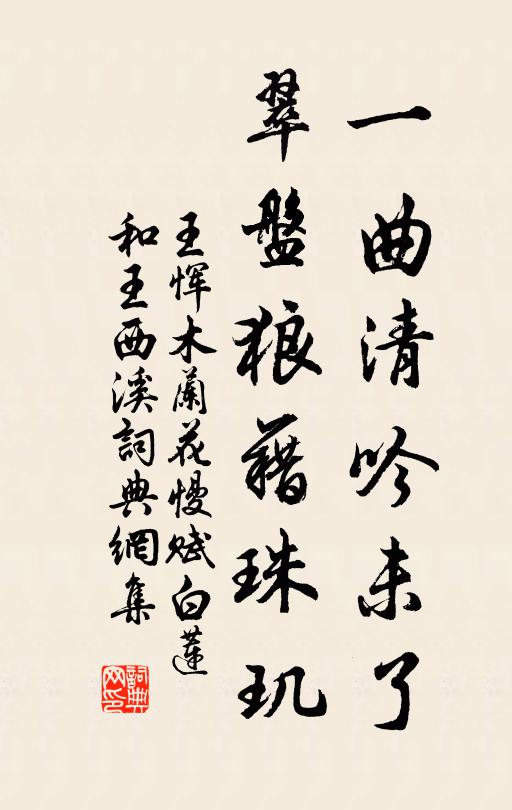 一曲清吟未了
翠盤狼藉珠玑
王恽木蘭花慢赋白蓮
和王西溪詞典網集
詞典網印